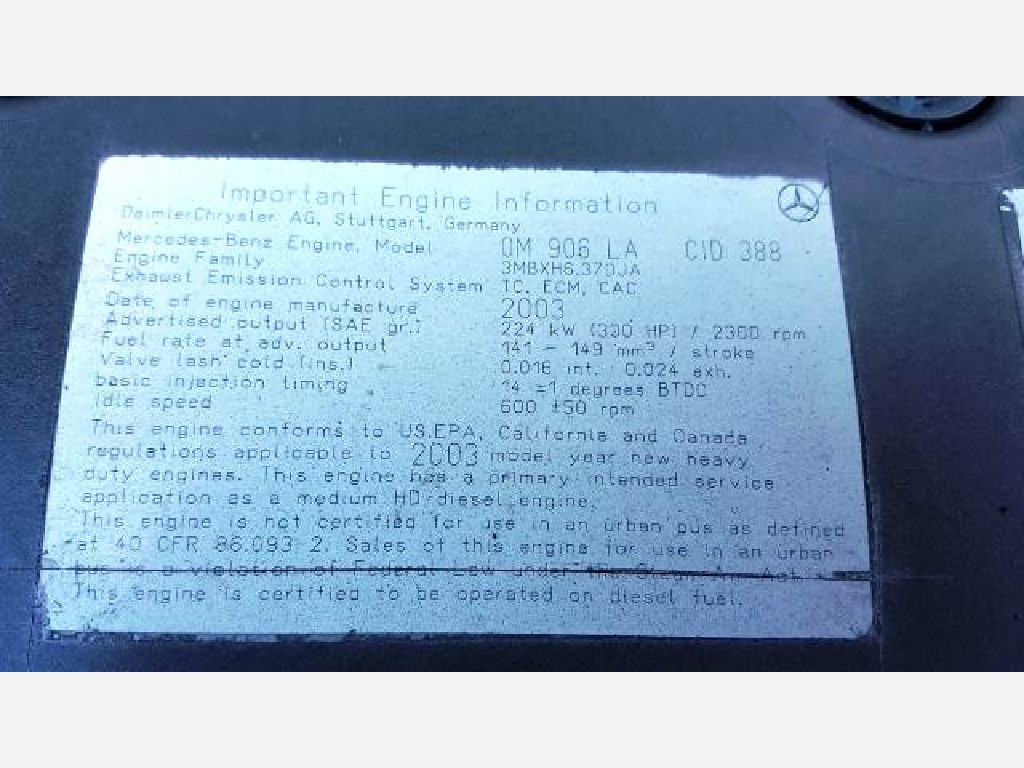 Important Engine Information
DaimlerChrysler AG, Stuttgart, Germany
Mercedes-Benz Engine, Model OM 906 LA CID 388
Engine Family 3MBXH6.37DJA
Exhaust Emission Control System TC, ECM, CAC
Date of engine manufacture 2003
Advertised output (SAE gr.) 224 kW (300 HP) / 2300 rpm
Fuel rate at adv. output 141 - 149 mm³ / stroke
Valve lash cold (ins.) 0.016 int. 0.024 exh.
basic injection timing 14 ±1 degrees BTDC
Idle speed 600 ±50 rpm
This engine conforms to US.EPA, California and Canada
regulations applicable to 2003 model year new heavy
duty engines. This engine has a primary intended service
application as a medium HD-diesel engine.
This engine is not certified for use in an urban bus as defined
at 40 CFR 86.093 2. Sales of this engine for use in an urban
bus is a violation of Federal Law under the Clean Air Act.
This engine is certified to be operated on diesel fuel.